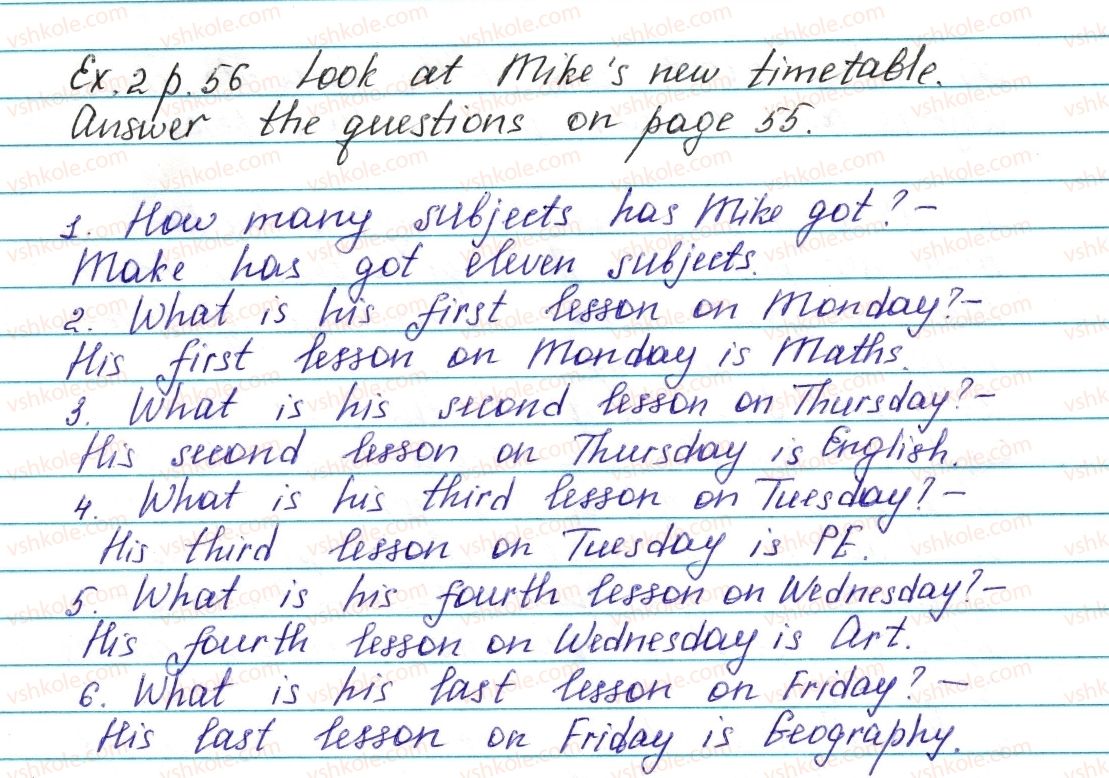 Ex. 2 p. 56 Look at Mike's new timetable.
Answer the questions on page 55.
1. How many subjects has Mike got? –
Make has got eleven subjects.
2. What is his first lesson on Monday? –
His first lesson on Monday is Maths.
3. What is his second lesson on Thursday? –
His second lesson on Thursday is English.
4. What is his third lesson on Tuesday? –
His third lesson on Tuesday is PE.
5. What is his fourth lesson on Wednesday? –
His fourth lesson on Wednesday is Art.
6. What is his last lesson on Friday? –
His last lesson on Friday is Geography.
vshkole.com